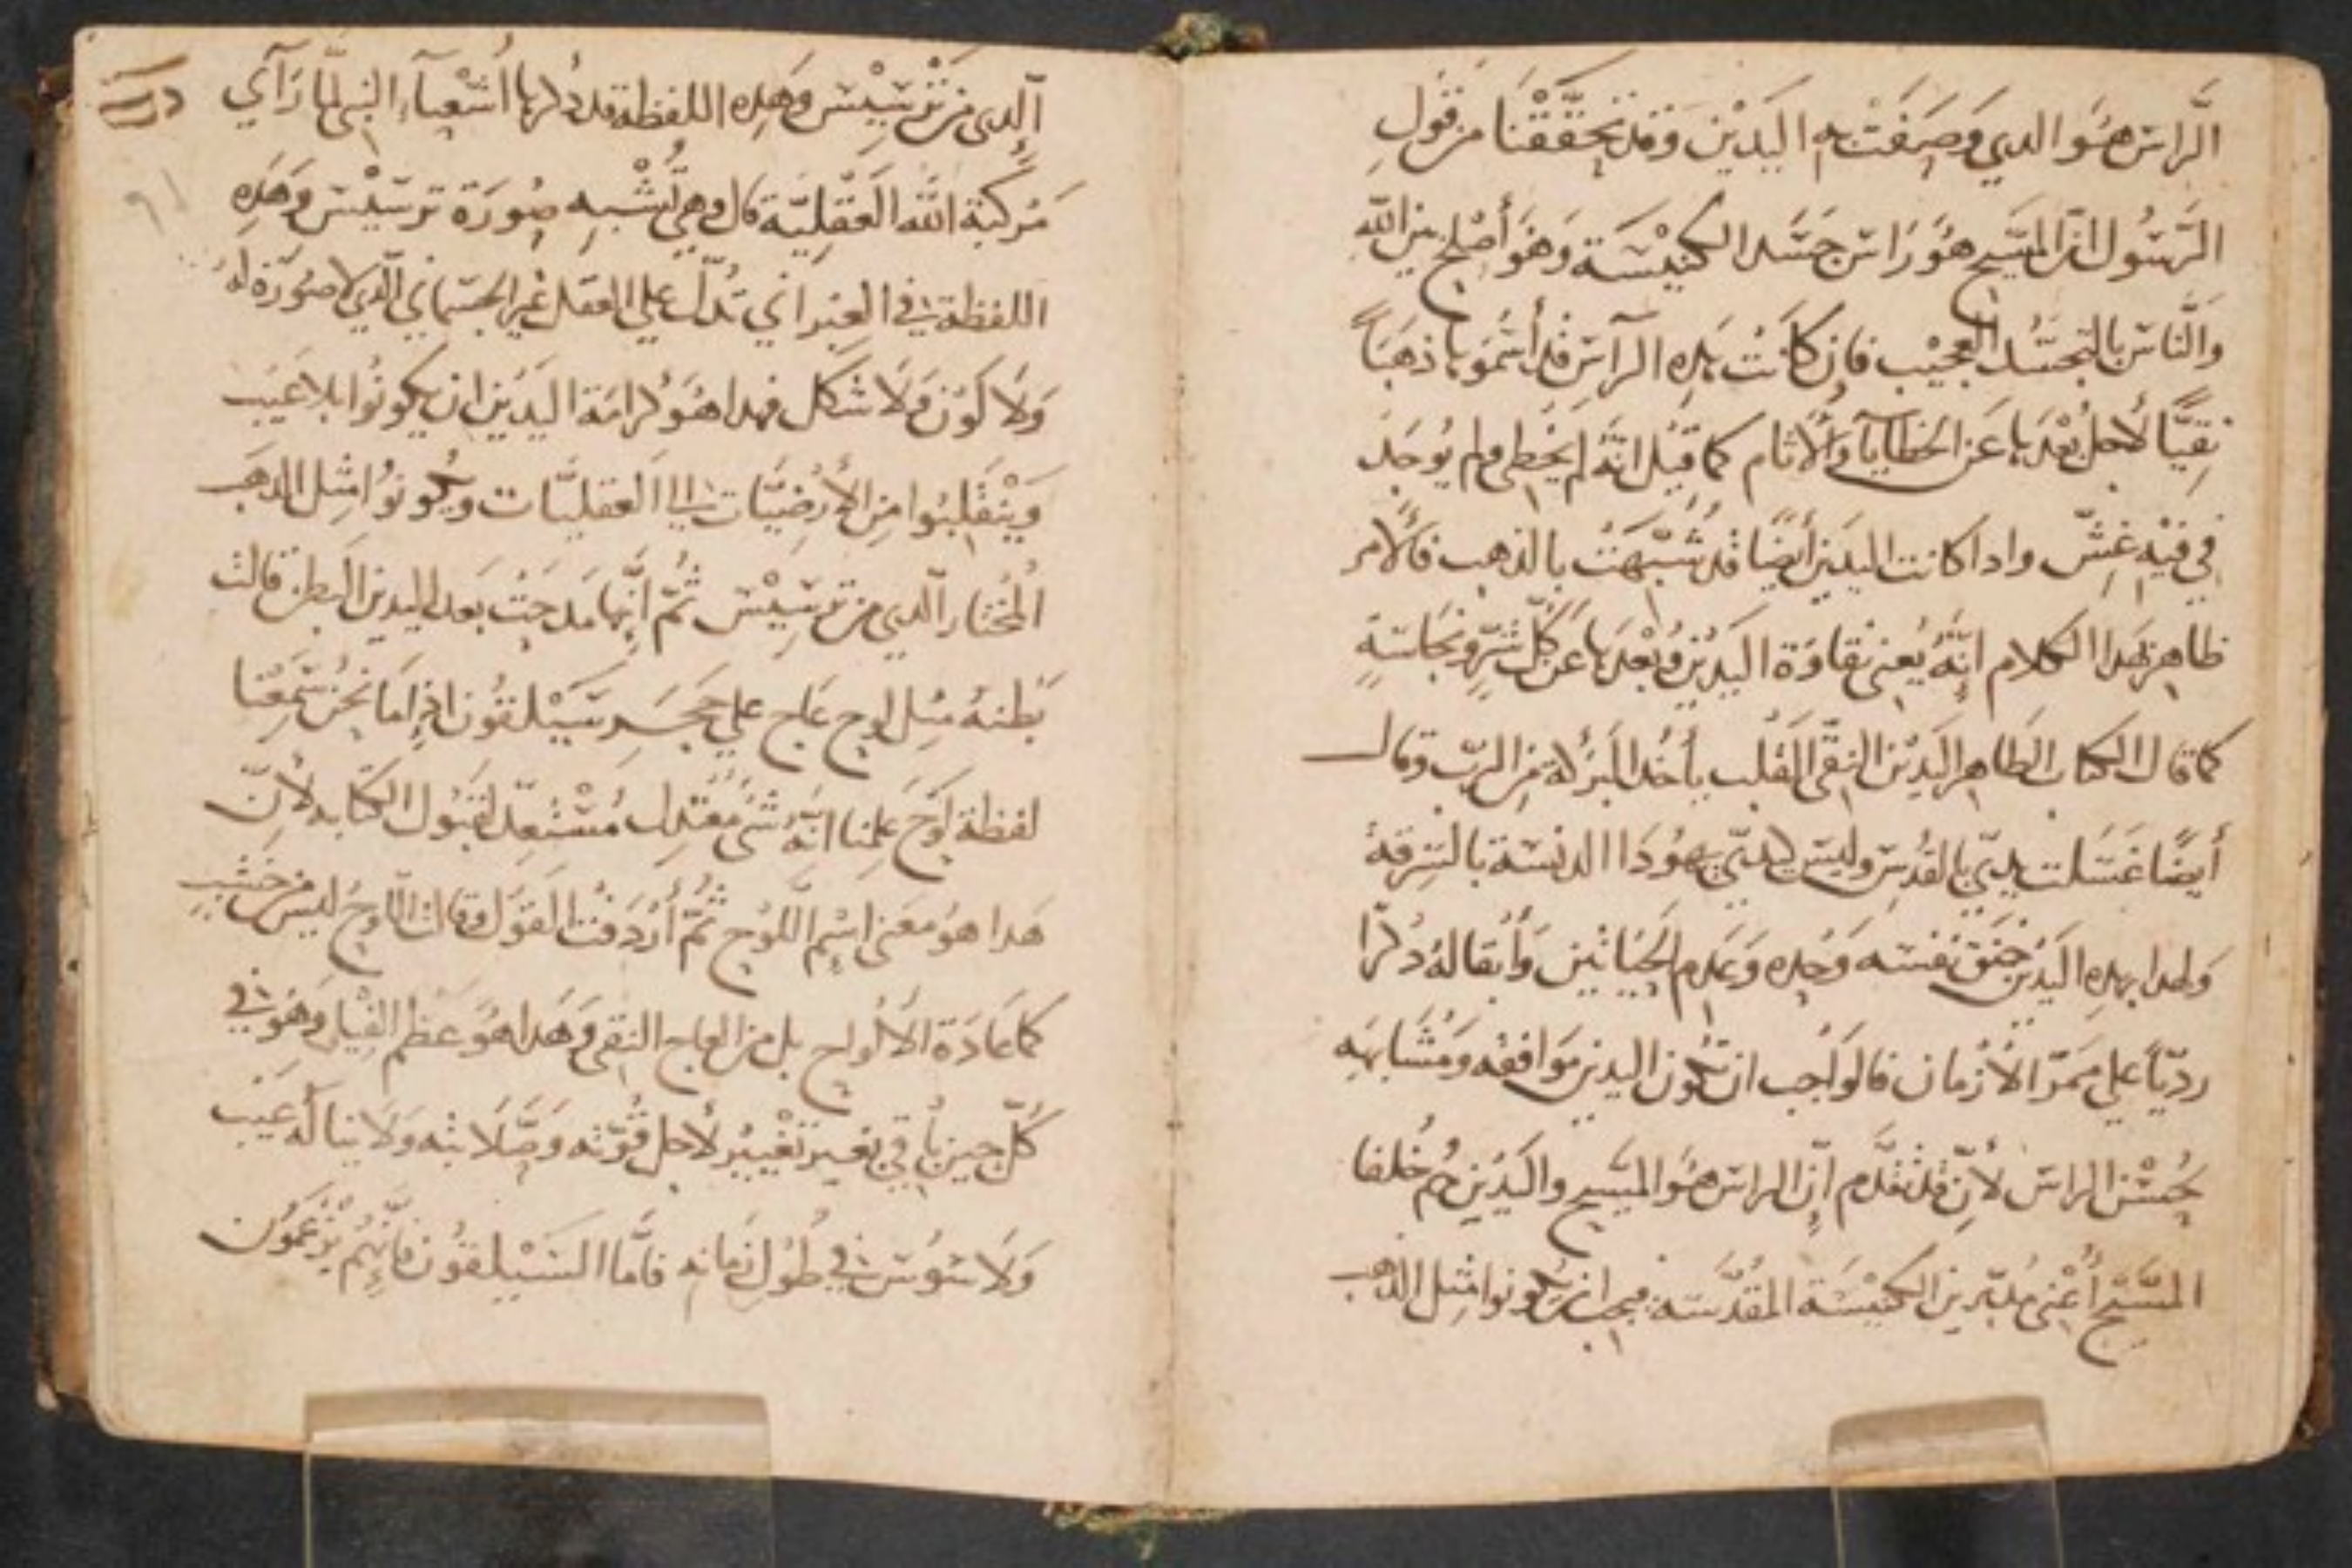 الرَّاس هُوَ الدي وَصَفَتْ به اليَدَيْن وَقد تحَقَّقْنَا من قَولِ
الرَّسُول انَّ المسَيح هُوَ رَاس جَسَد الكنيْسَة وَهَوَ أصْلح بين الله
وَالنَّاس بالتجسّد العجيْب فان كَانَتْ هَدِه الرَآس قد أسْمَوهَا ذهبَاً
نقِيَّاً لأجل بُعْدهَا عَن الخَطَايآ وَالأثام كما قيْل انَّهُ لم يَخْطي ولم يُوجَد
في فيْهِ غِشّ وادا كانت اليدَين أيضًا قد شُبّهَتْ بالذهب فالأمر
ظاهر بهَدا الكلام إنَّهُ يُعني نقاوَة اليَدَيْن وبُعْدهَا عَن كُلّ شرٍّ ونجاسَةٍ
كما قال الكتاب الطَاهر اليَدَيْن النقي القَلب يأخُد البَرَكة مِن الربّ وقال
أيضًا غسَلت يديّ بالقدُس وليسَ كيديّ يَهُودَا الدنسَة بالسَرقة
وَلهدا بهدِه اليَدَين خنَق نفسَه وَحْده وَعَدم الحَيَاتَين وَأبقا لهُ دكْرًا
رديّاً علي مَمَرّ الأزمان فالوَاجب ان تكون اليدين مَوَافقه وَمُشَابهَه
لحُسْن الراس لأنّ قد تقَدَّم إنَّ الراس هُوَ المسَيح واليَدَين هُم خُلفا
المسَّيح أعْني مُدَبّرين الكنيْسَة المقدَّسَة فيجب ان يكونوا مثِل الذهب
الدي من ترسِيْس وَهَدِه اللفظة قد دُكرهَا أشعْيآء النبي لمَّا رَآي
مَركبَة الله العَقليَّة قال وهي تُشْبِه صُورَة ترسَيْس وَهَدِه
اللفظة في العِبراني تَدُلّ علي العَقل غير الجسَماني الدي لا صُورَة لهُ
وَلا كَوْن وَلا شكل فهدا هُوَ كرامَة اليَدَين ان يكونُوا بلا عَيب
وَيَنْقَلِبُوا من الأرْضيَّات الي العَقليَّات ويكونوُا مثِل الدهَب
المُختار الدي من ترسِيْس ثُمّ إنَّها مَدحَتْ بَعد اليدين البطن قالت
بَطنهُ مثِل لوح عَاج علي حَجَرِ سَيْلقُون اذِا مَا نَحْنُ سَمِعْنا
لفظة لَوْح عَلِمنا انَّهُ شيءٌ مُعْتدل مُسْتعِدّ لقبُول الكتابه لأنّ
هَدا هوُ مَعني اسْم اللَّوْح ثُمّ أرْدَفت القوْل وقالت اللَّوح ليس من خشَبٍ
كما عَادَة الألواح بل من العاج النقي وَهَدا هُوَ عَظم الفيْل وَهُوَ في
كُلّ حين باقي بغير تغْييرٍ لأجل قُوّته وَصَّلابته وَلا ينالهُ عَيْب
وَلا سُوس في طُول زمانه فامَّا السَيْلقوُن فانَّهُم يَزْعَمُون